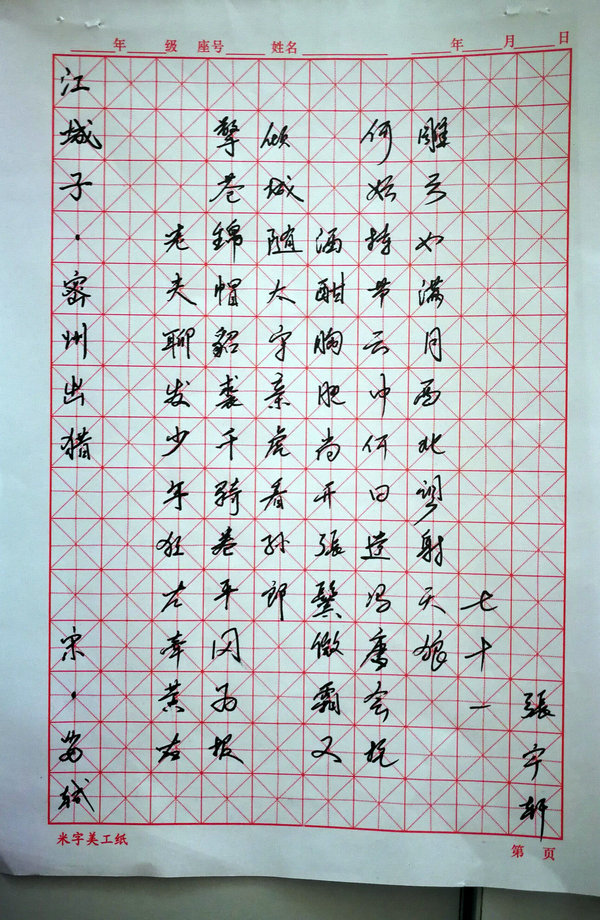 年 级 座号 姓名 年 月 日
江城子·密州出猎 宋·苏轼
老夫聊发少年狂左牵黄右
擎苍锦帽貂裘千骑卷平冈为报
倾城随太守亲虎看孙郎
酒酣胸胆尚开張鬓微霜又
何妨持节云中何日遣冯唐会挽
雕弓如满月西北望射天狼
七十一
張宇軒
米字美工纸 第 页